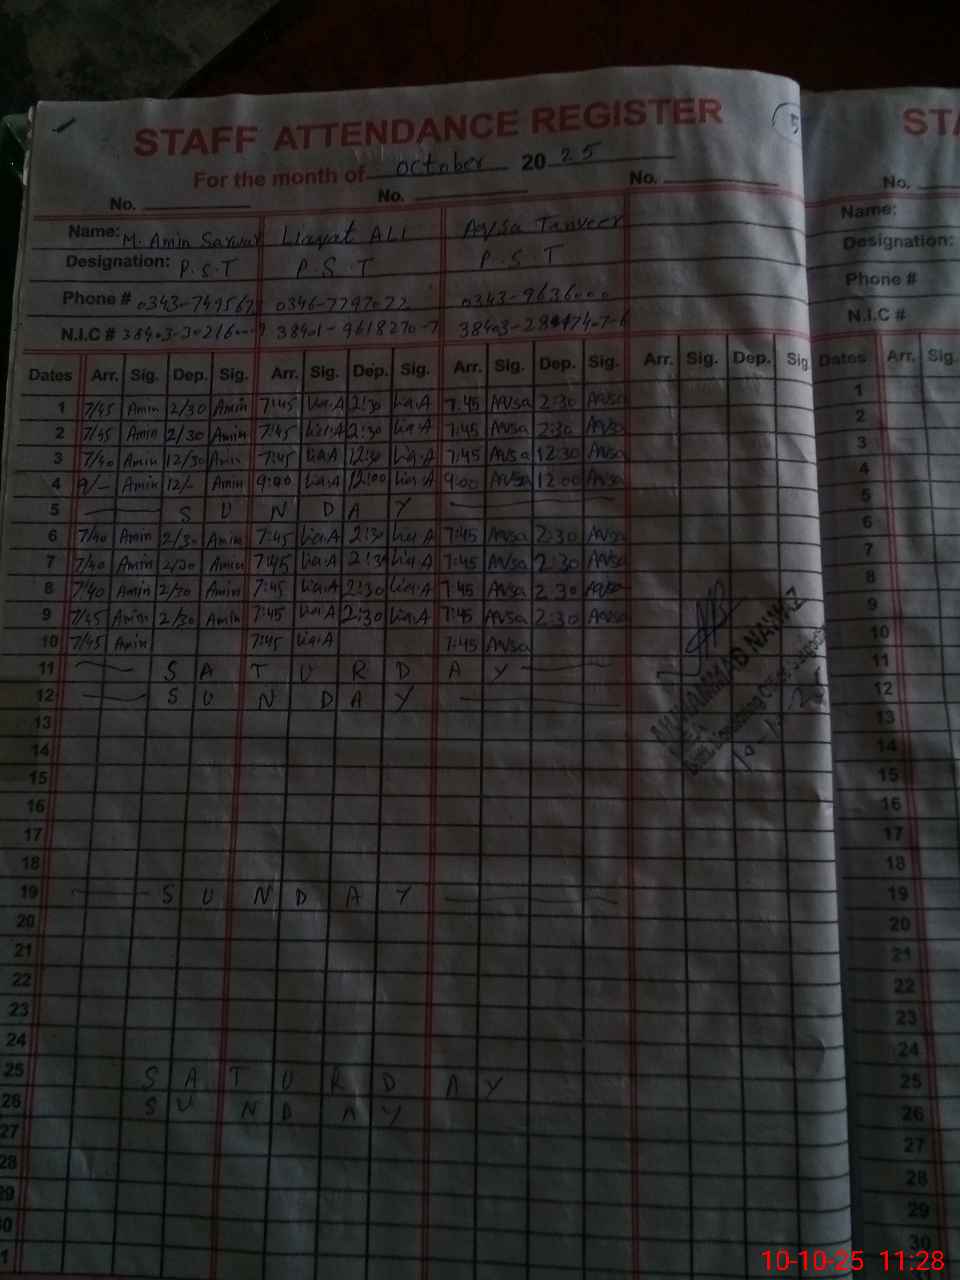 5
STAFF ATTENDANCE REGISTER
For the month of October 20 25
No. No. No.
Name: M. Amin Sarwar Liayat ALI Aqsa Tanveer
Designation: P.S.T P.S.T P.S.T
Phone # 0346-7797022 0343-9636000
N.I.C #
Dates Arr. Sig. Dep. Sig. Arr. Sig. Dep. Sig. Arr. Sig. Dep. Sig. Arr. Sig. Dep. Sig.
1 7/45 Amin 2/30 Amin 7:45 Lia.A 2:30 Lia.A 7:45 Aqsa 2:30 Aqsa
2 7/45 Amin 2/30 Amin 7:45 Lia.A 2:30 Lia.A 7:45 Aqsa 2:30 Aqsa
3 7/40 Amin 12/30 Amin 7:45 Lia.A 12:30 Lia.A 7:45 Aqsa 12:30 Aqsa
4 9/- Amin 12/- Amin 9:00 Lia.A 12:00 Lia.A 9:00 Aqsa 12:00 Aqsa
5 S U N D A Y
6 7/40 Amin 2/30 Amin 7:45 Lia.A 2:30 Lia.A 7:45 Aqsa 2:30 Aqsa
7 7/40 Amin 2/30 Amin 7:45 Lia.A 2:30 Lia.A 7:45 Aqsa 2:30 Aqsa
8 7/40 Amin 2/30 Amin 7:45 Lia.A 2:30 Lia.A 7:45 Aqsa 2:30 Aqsa
9 7/45 Amin 2/30 Amin 7:45 Lia.A 2:30 Lia.A 7:45 Aqsa 2:30 Aqsa
10 7/45 Amin 7:45 Lia.A 7:45 Aqsa
11 S A T U R D A Y
12 S U N D A Y
13
14
15
16
17
18
19 S U N D A Y
20
21
22
23
24
25 S A T U R D A Y
26 S U N D A Y
27
28
29
30
MUHAMMAD NAWAZ
No.
Name:
Designation:
Phone #
N.I.C #
Dates Arr. Sig.
1
2
3
4
5
6
7
8
9
10
11
12
13
14
15
16
17
18
19
20
21
22
23
24
25
26
27
28
29
30
10-10-25 11:28